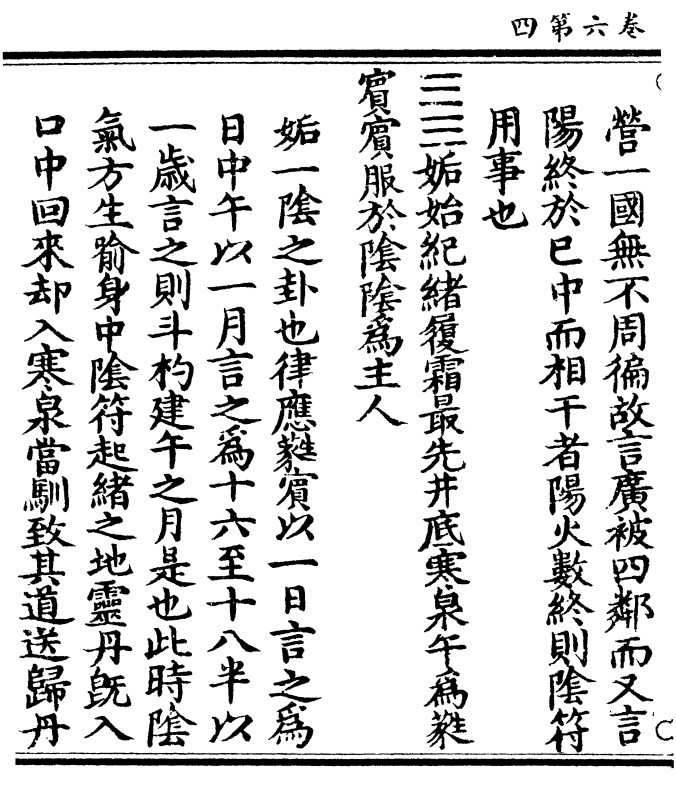 卷六第四
營一國無不周徧故言廣被四鄰而又言
陽終於巳中而相干者陽火數終則陰符
用事也
三三姤始紀緒履霜最先井底寒泉午為蕤
賓賓服於陰陰為主人
姤一陰之卦也律應蕤賓以一日言之為
日中午以一月言之為十六至十八半以
一歲言之則斗杓建午之月是也此時陰
氣方生喻身中陰符起緒之地靈丹旣入
口中回來却入寒泉當馴致其道送歸丹